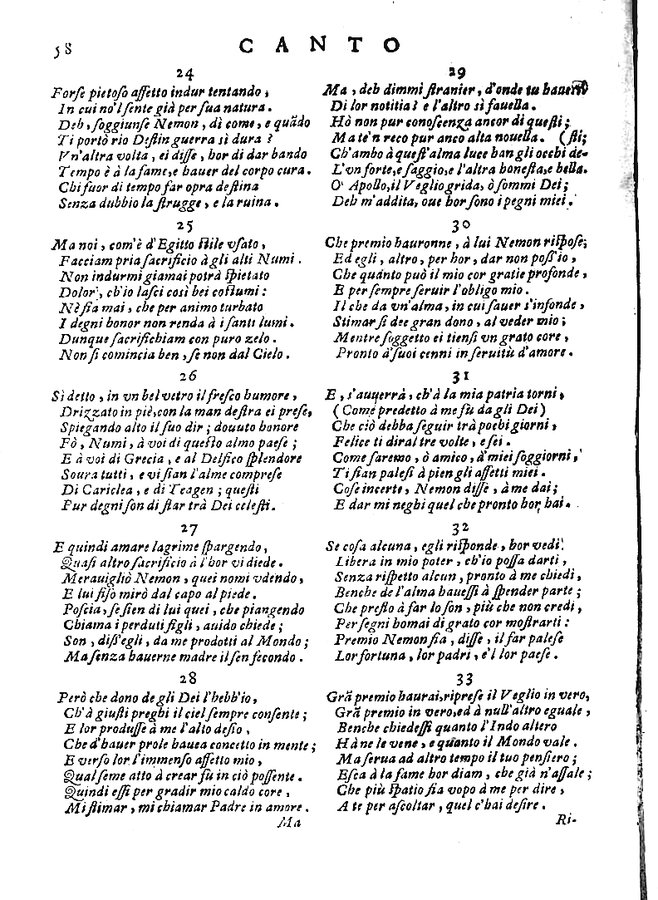 58
CANTO
24
Forse pietoso affetto indur tentando,
In cui no'l sente già per sua natura.
Deh, soggiunse Nemon, dì come, e quãdo
Ti portò rio Destin guerra sì dura?
Vn'altra volta, ei disse, hor di dar bando
Tempo è à la fame, e hauer del corpo cura.
Chi fuor di tempo far opra destina
Senza dubbio la strugge, e la ruina.
25
Ma noi, com'è d'Egitto stile vsato,
Facciam pria sacrificio à gli alti Numi.
Non indurmi giamai potrà spietato
Dolor, ch'io lasci così bei costumi:
Nè sia mai, che per animo turbato
I degni honor non renda à i santi lumi.
Dunque sacrifichiam con puro zelo.
Non si comincia ben, se non dal Cielo.
26
Sì detto, in vn bel vetro il fresco humore,
Drizzato in piè, con la man destra ei prese,
Spiegando alto il suo dir; douuto honore
Fò, Numi, à voi di questo almo paese;
E à voi di Grecia, e al Delfico splendore
Soura tutti, e vi sian l'alme comprese
Di Cariclea, e di Teagen; questi
Pur degni son di star trà Dei celesti.
27
E quindi amare lagrime spargendo,
Quasi altro sacrificio à l'hor vi diede.
Merauigliò Nemon, quei nomi vdendo,
E lui fisò mirò dal capo al piede.
Poscia, se sien di lui quei, che piangendo
Chiama i perduti figli, auido chiede;
Son, diss'egli, da me prodotti al Mondo;
Ma senza hauerne madre il sen fecondo.
28
Però che dono de gli Dei l'hebb'io,
Ch'à giusti preghi il ciel sempre consente;
E lor produsse à me l'alto desio,
Che d'hauer prole hauea concetto in mente;
E verso lor l'immenso affetto mio,
Qual seme atto à crear fù in ciò possente.
Quindi essi per gradir mio caldo core,
Mi stimar, mi chiamar Padre in amore.
Ma
29
Ma, deh dimmi stranier, d'onde tu hauesti
Di lor notitia? e l'altro sì fauella.
Hò non pur conoscenza ancor di questi;
Ma te'n reco pur anco alta nouella. (sti;
Ch'ambo à quest'alma luce han gli occhi de-
L'vn forte, e saggio, e l'altra honesta, e bella.
O' Apollo, il Veglio grida, ò sommi Dei;
Deh m'addita, oue hor sono i pegni miei.
30
Che premio hauronne, à lui Nemon rispose;
Ed egli, altro, per hor, dar non poss'io,
Che quanto può il mio cor gratie profonde,
E per sempre seruir l'obligo mio.
Il che da vn'alma, in cui sauer s'infonde,
Stimar si dee gran dono, al veder mio;
Mentre soggetto ei tiensi vn grato core,
Pronto à suoi cenni in seruitù d'amore.
31
E, s'auuerrà, ch'à la mia patria torni,
(Come predetto à me fù da gli Dei)
Che ciò debba seguir trà pochi giorni,
Felice ti dirai tre volte, e sei.
Come saremo, ò amico, à' miei soggiorni,
Ti sian palesi à pien gli affetti miei.
Cose incerte, Nemon disse, à me dai;
E dar mi neghi quel che pronto hor hai.
32
Se cosa alcuna, egli risponde, hor vedi.
Libera in mio poter, ch'io possa darti,
Senza rispetto alcun, pronto à me chiedi,
Benche de l'alma hauessi à spender parte;
Che presto à far lo son, più che non credi,
Per segni homai di grato cor mostrarti:
Premio Nemon sia, disse, il far palese
Lor fortuna, lor padri, e'l lor paese.
33
Grã premio haurai, riprese il Veglio in vero,
Grã premio in vero, ed à null'altro eguale,
Benche chiedessi quanto l'Indo altero
Hà ne le vene, e quanto il Mondo vale.
Ma serua ad altro tempo il tuo pensiero;
Esca à la fame hor diam, che già n'assale;
Che più spatio sia vopo à me per dire,
A te per ascoltar, quel c'hai desire.
Ri-